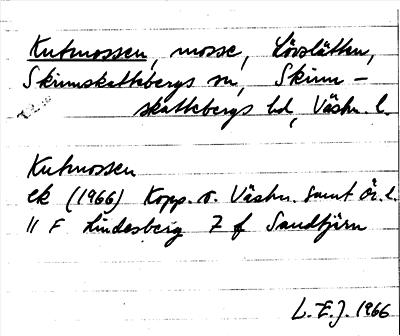 Kutmossen, mosse, Lövslätten,
Skinnskattebergs sn, Skinn-
skattebergs hd, Västm. l.
Kutmossen
ek (1966) Kopp. o. Västm. samt Ör. l.
11 F Lindesberg 7 f Sandtjärn
L.E.J. 1966